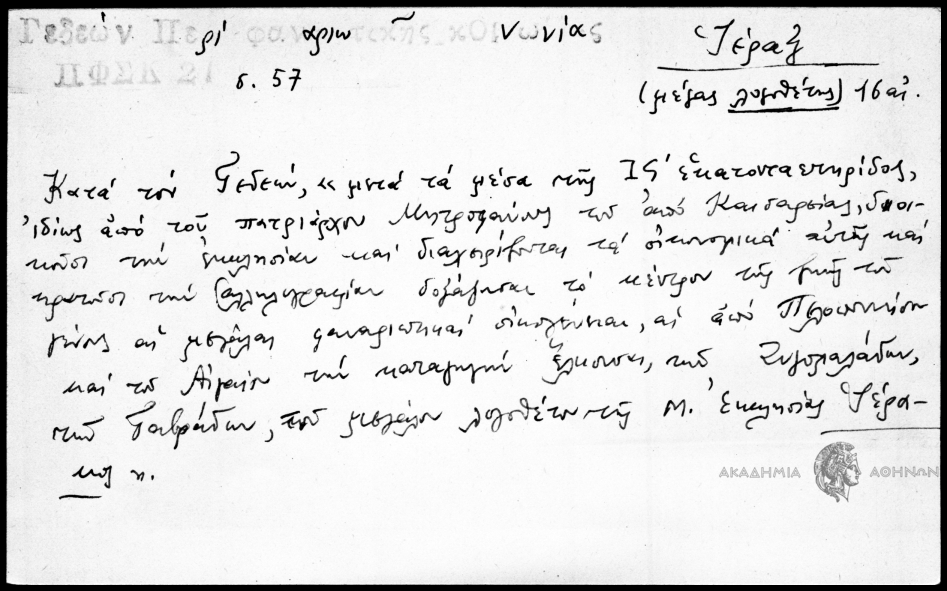 Γεδεών Περί φαναριωτικῆς κοινωνίας
ΠΦΣΚ 21
σ. 57
Ἱέραξ
(μέγας λογοθέτης) 16 αἰ.
Κατά τόν Γεδεών, « μετά τά μέσα τῆς Ις′ ἑκατονταετηρίδος,
ἰδίως ἀπό τοῦ πατριάρχου Μητροφάνους τοῦ ἀπό Καισαρείας, διοι-
κοῦσι τήν ἐκκλησίαν καί διαχειρίζονται τά οἰκονομικά αὐτῆς καί
κρατοῦσι τήν ἀλληλογραφίαν τό κέντρον τῆς ζωῆς τοῦ
γένους αἱ μεγάλαι φαναριωτικαί οἰκογένειαι, αἱ ἀπό Πελοποννήσου
καί τοῦ Αἰγαίου τήν καταγωγήν ἕλκουσαι, τῶν Ζυγομαλάδων,
τῶν Γαβράδων, τοῦ μεγάλου λογοθέτου τῆς Μ. Ἐκκλησίας Ἱέρα-
κος ».
ΑΚΑΔΗΜΙΑ ΑΘΗΝΩΝ